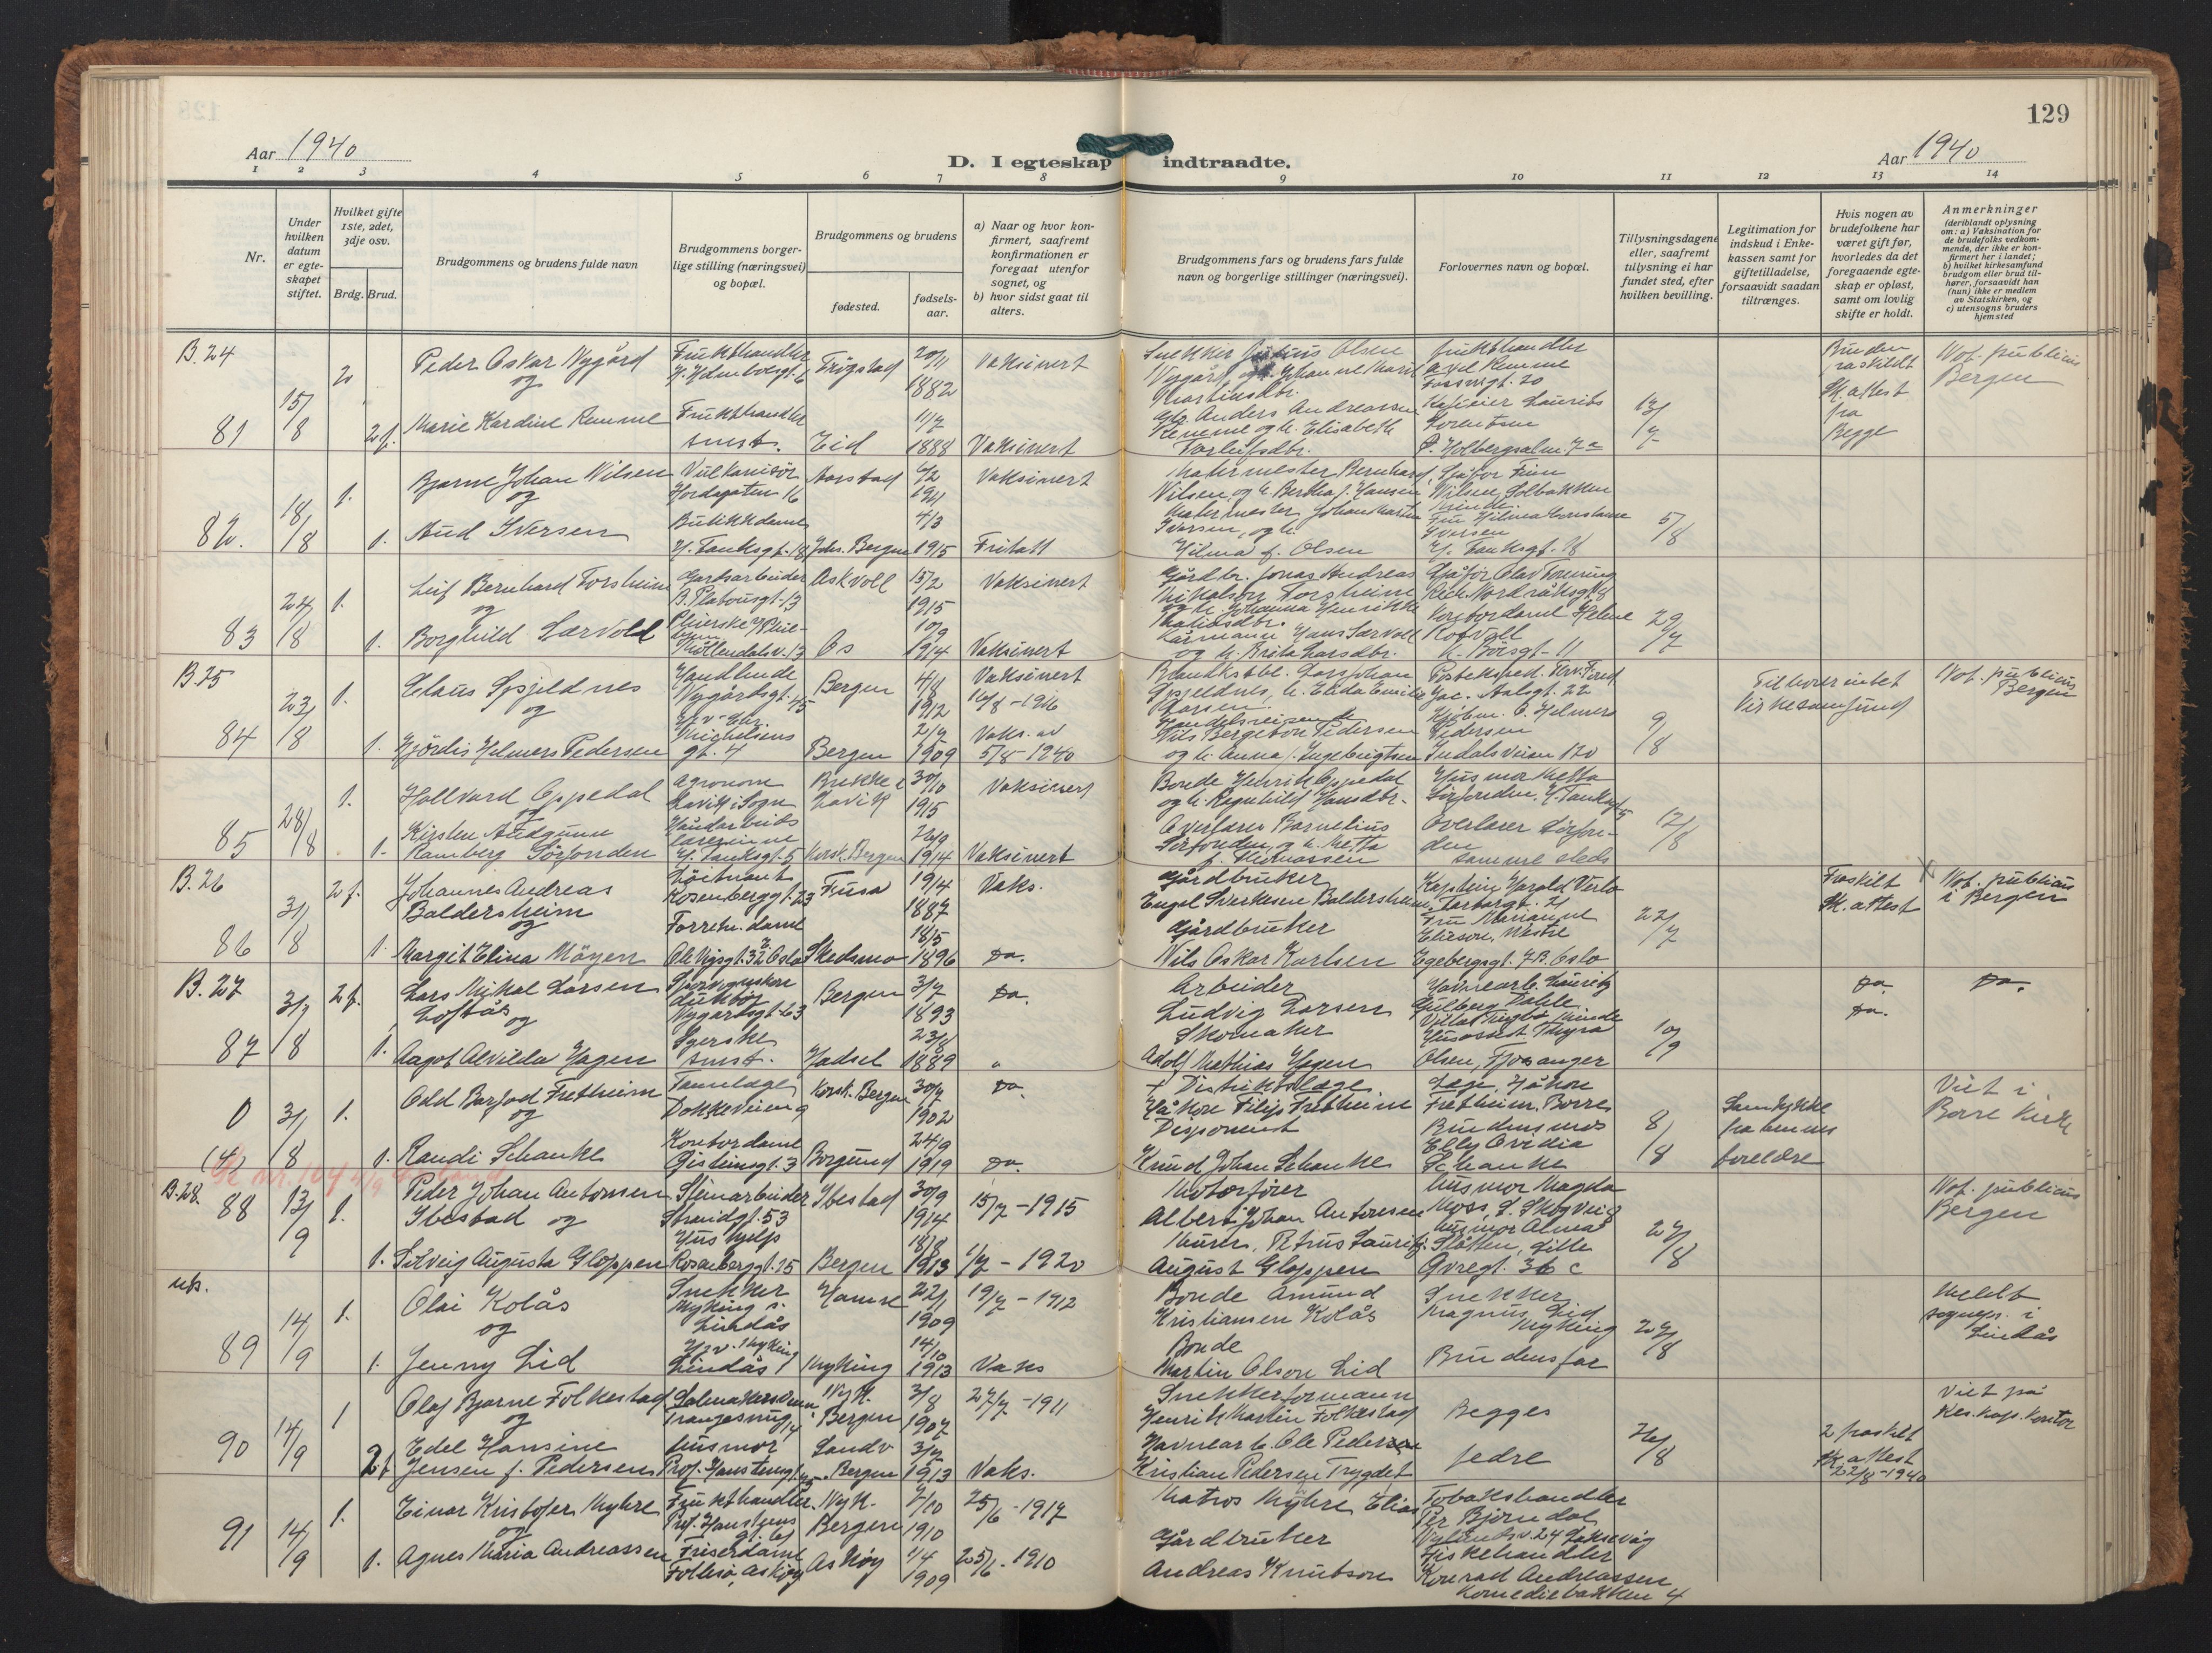 129
Aar 1940
D. I egteskap indtraadte.
Aar 1940
1 2 3 4 5 6 7 8 9 10 11 12 13 14
Nr.
Under hvilken datum er egteskapet stiftet.
Hvilket gifte 1ste, 2det, 3dje osv.
Brdg. Brud.
Brudgommens og brudens fulde navn
Brudgommens borgerlige stilling (næringsvei) og bopæl.
Brudgommens og brudens
fødested.
fødselsaar.
a) Naar og hvor konfirmert, saafremt konfirmationen er foregaat utenfor sognet, og
b) hvor sidst gaat til alters.
Brudgommens fars og brudens fars fulde navn og borgerlige stillinger (næringsvei).
Forlovernes navn og bopæl.
Tillysningsdagene eller, saafremt tillysning ei har fundet sted, efter hvilken bevilling.
Legitimation for indskud i Enkekassen samt for giftetilladelse, forsaavidt saadan tiltrænges.
Hvis nogen av brudefolkene har været gift før, hvorledes da det foregaaende egteskap er opløst, samt om lovlig skifte er holdt.
Anmerkninger
(deriblandt oplysning om: a) Vaksination for de brudefolks vedkommende, der ikke er konfirmert her i landet;
b) hvilket kirkesamfund brudgom eller brud tilhører, forsaavidt han (hun) ikke er medlem av Statskirken, og
c) utensogns bruders hjemsted
B.24
81 15/8 2 2f.
Peder Oskar Nygård
og
Marie Kardine Remme
Frukthandler
Frukthandler
smst.
Trøgstad 20/11 1882 Vaksinert
Eid 11/7 1888 Vaksinert
Snekker Julius Olsen
Nygård, og h. Johanne Marie
Martinsdbr.
Gbr. Anders Andreassen
Remme og h. Elisabeth
Frukthandler
Axel Remme
Laurits
Sørentsen
13/7
Bruden
fraskildt
Sk. attest
fra
Begge
Not. publicus
Bergen
82. 18/8 1. 1.
Bjarne Johan Nilsen
og
Aud Iversen
Vulkanisør
Hordagaten 16
Butikkdame
H. Tanksgt. 18
Aarstad 6/2 1911 Vaksinert
Johs. Bergen 4/3 1915 Fritatt
Malermester Bernhard
Nilsen, og h. Bertha f. Hansen
Malermester Johan Martin
Iversen, og h.
Hilma f. Olsen
Sjåfør Finn
Nilsen, Solbakken
Minde
Fru Hilma Konstanse
Iversen
H. Tanksgt. 18
5/8
83 24/8 1. 1.
Leif Bernhard Torsheim
og
Borghild Særvold
Gartnarbeider
B. Platousgt. 13
Pleierske
Møllendalsv. 13
Askvoll 15/2 1915 Vaksinert
Os 10/9 1914 Vaksinert
Gårdbr. Jonas Andreas
Mikalson Torsheim
og h. Johanna Henrikke
Kårmann Hans Særvoll
og h. Brita Larsdbr.
Sjåfør Olav Torsheim
Rich. Nordråksgt. 18
Kontordame Helene
29/7
B.25
84 23/8 1. 1.
Claus Gjeldnes
og
Hjørdis Helmers Pedersen
Handlende
Nygårdsgt. 45
Chr.
Michelsens
gt. 4
Bergen 4/8 1912 Vaksinert
16/8-1916
Bergen 2/7 1909 Vaks. av
5/8-1940
Larsen
Handelsreisende
Nils Bergeton Pedersen
og h. Anna f. Ingebrigtsen
Jac. Aalsgt. 22
Kjøbm. C. Helmers
Pedersen
Indalsveien 120
9/8
Tilhører intet
kirkesamfund
Not. publicus
Bergen
85 28/8 1. 1.
Hallvard Oppedal
og
Kirsten Audgunn
Ramberg Sörfonden
Agronom
Lavik i Sogn
Håndarbeids
lærerinne
H. Tanksgt. 5
Brekke i
Lavik 30/10 1915 Vaksinert
Korsk. Bergen 26/9 1914 Vaksinert
Bonde Henrik Oppedal
og h. Ragnhild Hansdbr.
Overlærer Bornelius
Sörfonden, og h. Metta
f. Thomassen
Husmor Metta
Sörfonden, H. Tanksgt. 5
Overlærer Sörfonden
samme steds
17/8
B.26
86 31/8 2f. 1
Johannes Andreas
Baldersheim
og
Margit Elina Möyen
Löitnant
Rosenberggt. 23
Forretn. dame
Ole Vigsgt. 32 Oslo
Fusa 19/4 1887 Vaks.
Skedsmo 18/5 1896 Do.
Gårdbruker
Engel Sverksen Baldersheim
Gårdbruker
Nils Oskar Karlsen
Kaptein Harald
Fru Marianne
Eliesen, Westre
Egebergsgt. 7B. Oslo
22/7
Fraskilt
Sk. attest
Not. publicus
i Bergen
B.27
87 31/8 2f. 1.
Lars Mikal Larsen
Loftås
og
Aagot Alvilda Hagen
Nygårdsgt. 63
Syerske
smst.
Bergen 3/7 1893 Do.
Hadsel 23/8 1889 "
Arbeider
Ludvig Larsen
Skomaker
Adolf Mathias Hagen
Havnearb. Lauritz
Gulberg Dahle
Minde
Thyra
Olsen, Fjøsanger
10/9
Do.
Do.
Do.
0 (4) 31/8 1. 1.
Odd Barfod Fretheim
og
Randi Schanke
Tannlæge
Dokkeveien 9
Kontordame
Gisteinsgt. 3
Korsk. Bergen 30/7 1902 Do.
Borgund 24/9 1919 Do.
+ Distriktslæge
Håkon Filip Fretheim
Disponent
Knud Johan Schanke
Læge Håkon
Fretheim, Borre
Brudens mor
Elly Ovidia
Schanke
8/8
Samtykke
fra hennes
foreldre
Viet i
Borre kirke
B.28. 88 13/9 1. 1.
Peder Johan Antonsen
Ibestad og
Solveig Augusta Gloppen
Steinarbeider
Strandgt. 53
Hushjelp
Rosenberggt. 25
Ibestad 30/9 1914 15/7-1915
Bergen 18/8 1913 1/7-1920
Motorfører
Albert Johan Antonsen
Murer, Petrus Lauritz
August Gloppen
Husmor Magda
Moss, S. Skogvei 8
Husmor Alma
Slåtten, Lille
Øvregt. 36 c
27/8
Not. publicus
Bergen
uts.
89 14/9 1. 1.
Olai Kolås
og
Jenny Lid
Snekker
Myking i
Lindås
Myking
Lindås
Hamre 22/1 1909 19/7-1912
Myking 14/10 1913 Vaks
Bonde Amund
Kristiansen Kolås
Bonde
Martin Olson Lid
Snekker
Magnus Lid
Myking
Brudens far
27/8
Meldt
sognepr. i
Lindås
90 14/9 1 2f
Olaf Bjarne Folkestad
og
Edel Hansine
Jensen f. Pedersen
Husmor
Nyk.
Bergen 3/8 1907 27/7-1911
Sandv
Bergen 3/7 1913 Vaks.
Snekkerformann
Henrik Martin Folkestad
Havnearb. Ole Pedersen
Kristian Pedersen Trygdet
Begges
fedre
26/8
2 fraskilt
Sk. attest
22/8-1940
Viet på
Res. kap. kontor
91 14/9 1. 1.
Einar Kristofer Myhre
og
Agnes Maria Andreassen
Frukthandler
Prof. Hansteens
gt. 61
Friserdame
Follesø, Askøy
Nyk.
Bergen 7/10 1910 25/6-1917
Askøy 1/4 1909 25/6-1910
Matros Myhre Elias
Gårdbruker
Andreas Knutson
Tobakshandler
Per Bjørndal
Nylundsv. 24 Laksevåg
Fiskehandler
Konrad Andreassen
Komediebakken 4